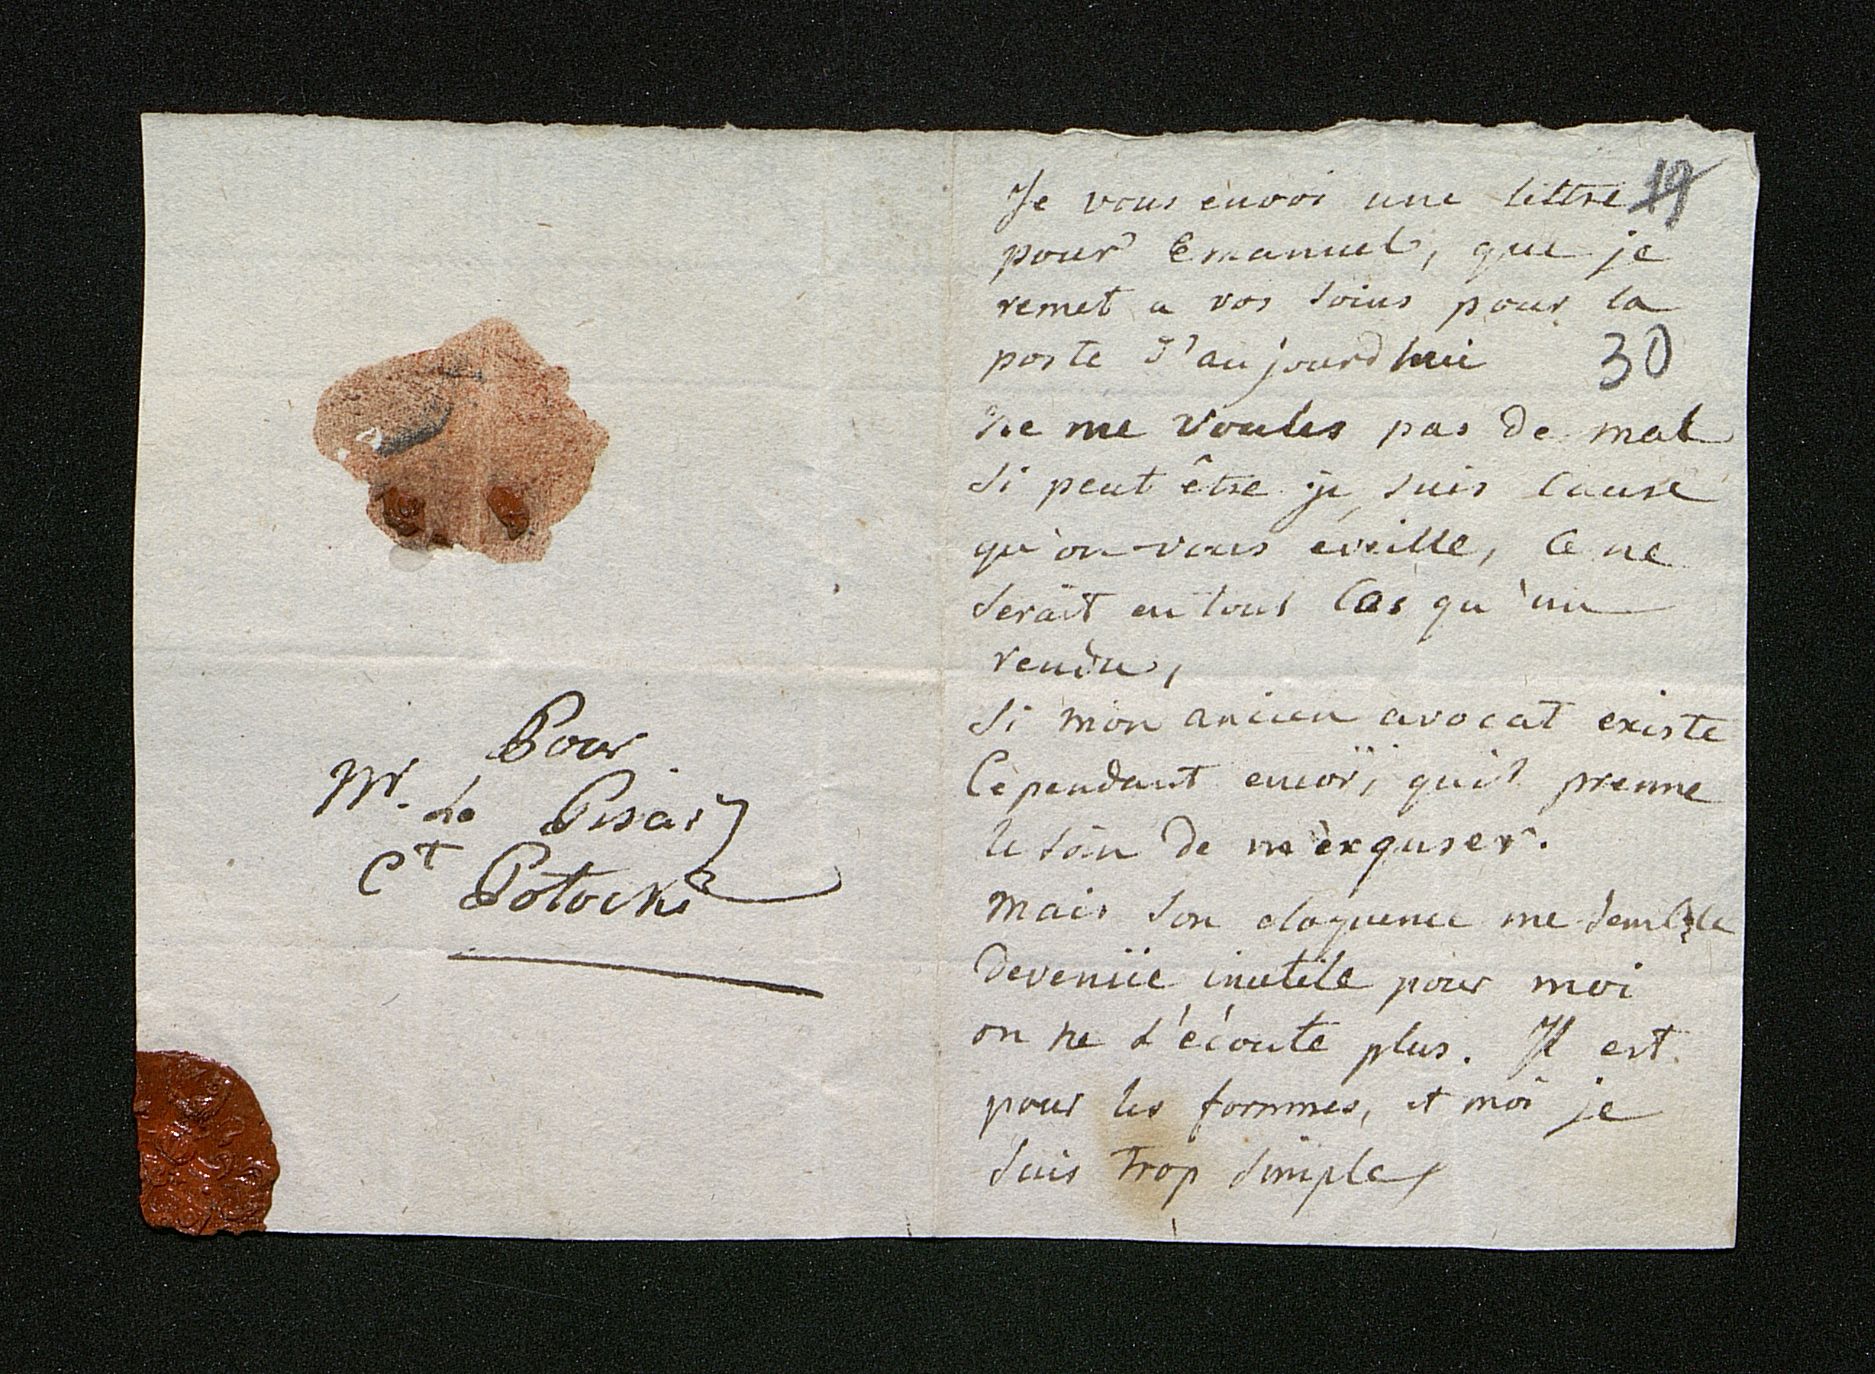 Pour
Mr. Le Pisarz
Ct Potocki
19
Je vous envoi une lettre
pour Emanuel, que je
remet a vos soins pour la
poste d'aujourdhui
30
Ne me voules pas de mal
si peut être je suis cause
qu'on vous éveille, ce ne
serait en tout cas qu'un
rendu,
Si mon ancien avocat existe
Cependant encor, qu'il prenne
le soin de m'exquser.
Mais son eloquence me semble
devenüe inutile pour moi
on ne l'écoute plus. Il est
pour les formmes, et moi je
suis trop simple